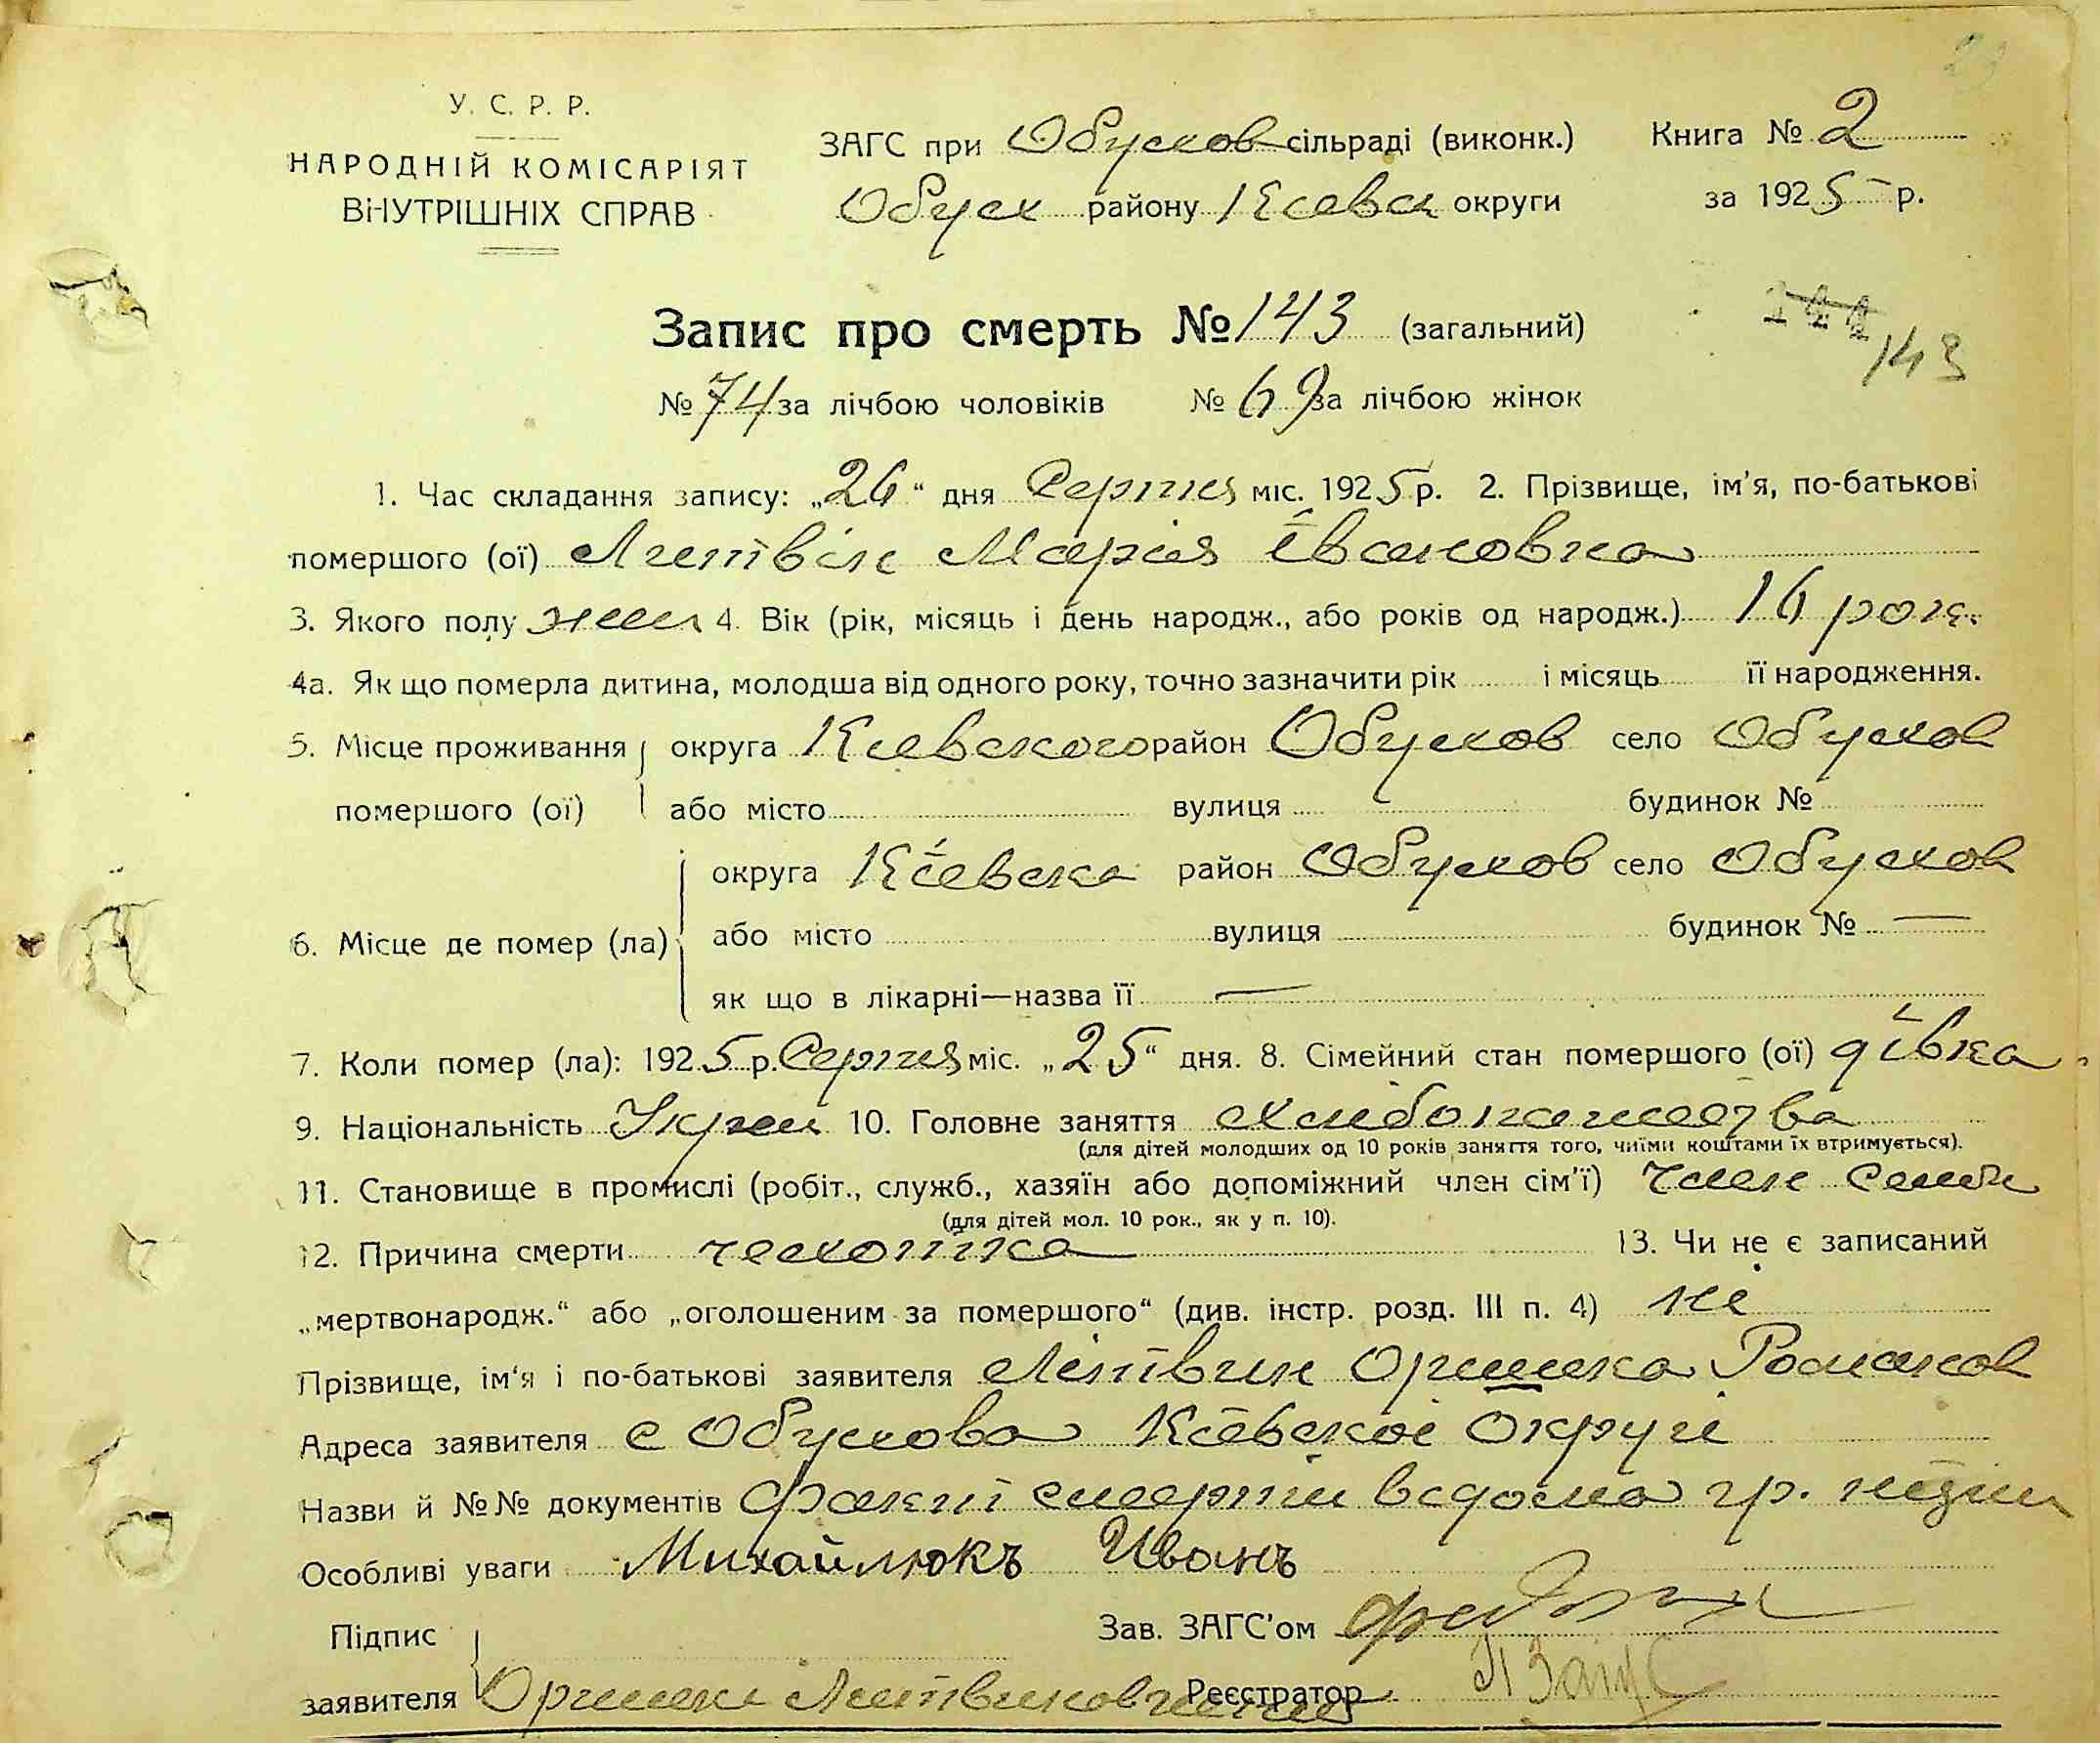 У. С. Р. Р.
НАРОДНІЙ КОМІСАРІЯТ
ВНУТРІШНІХ СПРАВ
ЗАГС при Обухов сільраді (виконк.) Книга № 2
Обух району Киевск округи за 1925 р.
Запис про смерть № 143 (загальний)
144
143
№ 74 за лічбою чоловіків № 69 за лічбою жінок
1. Час складання запису: „26“ дня Серпня міс. 1925 р. 2. Прізвище, ім'я, по-батькові
помершого (ої) Литвін Марія Івановна
3. Якого полу жен 4. Вік (рік, місяць і день народж., або років од народж.) 16 рок.
4а. Як що померла дитина, молодша від одного року, точно зазначити рік і місяць її народження.
5. Місце проживання округа Киевского район Обухов село Обухов
помершого (ої) або місто вулиця будинок №
округа Кіевска район Обухов село Обухов
6. Місце де помер (ла) або місто вулиця будинок № —
як що в лікарні—назва її —
7. Коли помер (ла): 1925 р. Серпня міс. „25“ дня. 8. Сімейний стан помершого (ої) дівка
9. Національність Укран 10. Головне заняття хлибопашество
(для дітей молодших од 10 років заняття того, чиїми коштами їх втримується).
11. Становище в промислі (робіт., служб., хазяїн або допоміжний член сім'ї) член семьи
(для дітей мол. 10 рок., як у п. 10).
12. Причина смерти чехотка 13. Чи не є записаний
„мертвонародж.“ або „оголошеним за помершого“ (див. інстр. розд. III п. 4) ні
Прізвище, ім'я і по-батькові заявителя Літвин Оришка Романов
Адреса заявителя с Обухова Кіевскоі Округи
Назви й №№ документів факт смерти ведома гр.
Особливі уваги Михайлюкъ Иванъ
Підпис Зав. ЗАГС'ом
заявителя Реєстратор